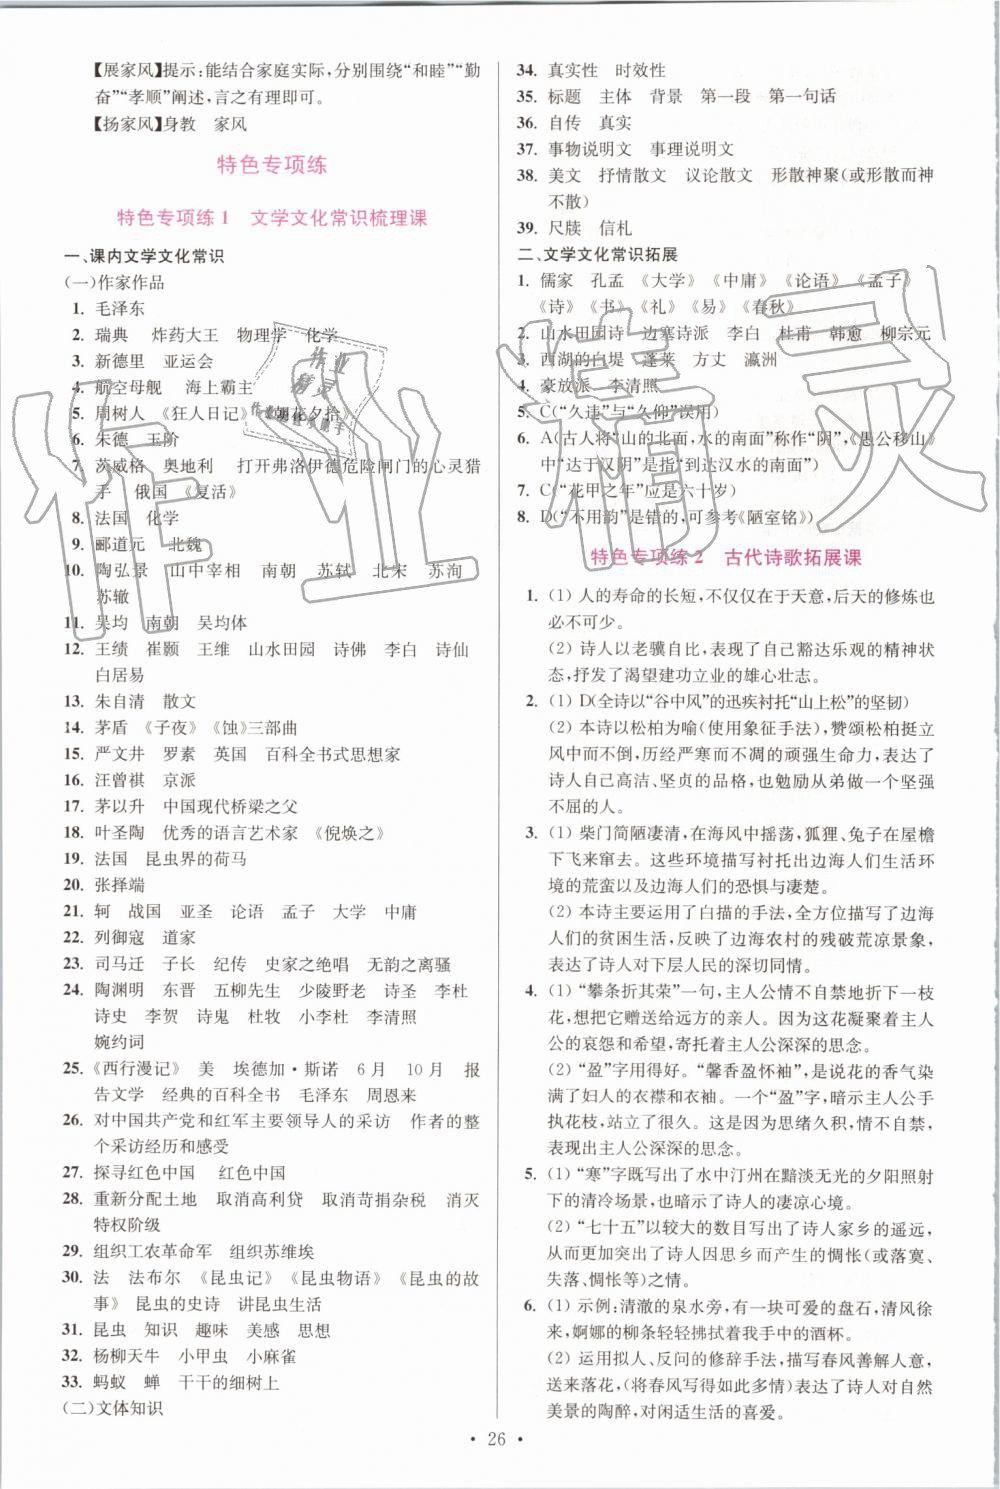 【展家风】提示:能结合家庭实际,分别围绕“和睦”“勤
奋”“孝顺”阐述,言之有理即可。
【扬家风】身教　家风
特色专项练
特色专项练1　文学文化常识梳理课
一、课内文学文化常识
(一)作家作品
1. 毛泽东
2. 瑞典　炸药大王　物理学　化学
3. 新德里　亚运会
4. 航空母舰　海上霸主
5. 周树人　《狂人日记》　《朝花夕拾》
6. 朱德　王阶
7. 茨威格　奥地利　打开弗洛伊德危险闸门的心灵猎
手　俄国　《复活》
8. 法国　化学
9. 郦道元　北魏
10. 陶弘景　山中宰相　南朝　苏轼　北宋　苏洵
苏辙
11. 吴均　南朝　吴均体
12. 王绩　崔颢　王维　山水田园　诗佛　李白　诗仙
白居易
13. 朱自清　散文
14. 茅盾　《子夜》　《蚀》三部曲
15. 严文井　罗素　英国　百科全书式思想家
16. 汪曾祺　京派
17. 茅以升　中国现代桥梁之父
18. 叶圣陶　优秀的语言艺术家　《倪焕之》
19. 法国　昆虫界的荷马
20. 张择端
21. 轲　战国　亚圣　论语　孟子　大学　中庸
22. 列御寇　道家
23. 司马迁　子长　纪传　史家之绝唱　无韵之离骚
24. 陶渊明　东晋　五柳先生　少陵野老　诗圣　李杜
诗史　李贺　诗鬼　杜牧　小李杜　李清照
婉约词
25. 《西行漫记》　美　埃德加·斯诺　6月　10月　报
告文学　经典的百科全书　毛泽东　周恩来
26. 对中国共产党和红军主要领导人的采访　作者的整
个采访经历和感受
27. 探寻红色中国　红色中国
28. 重新分配土地　取消高利贷　取消苛捐杂税　消灭
特权阶级
29. 组织工农革命军　组织苏维埃
30. 法　法布尔　《昆虫记》　《昆虫物语》　《昆虫的故
事》　昆虫的史诗　讲昆虫生活
31. 昆虫　知识　趣味　美感　思想
32. 杨柳天牛　小甲虫　小麻雀
33. 蚂蚁　蝉　干干的细树上
(二)文体知识
34. 真实性　时效性
35. 标题　主体　背景　第一段　第一句话
36. 自传　真实
37. 事物说明文　事理说明文
38. 美文　抒情散文　议论散文　形散神聚(或形散而神
不散)
39. 尺牍　信札
二、文学文化常识拓展
1. 儒家　孔孟　《大学》　《中庸》　《论语》　《孟子》
《诗》　《书》　《礼》　《易》　《春秋》
2. 山水田园诗　边塞诗派　李白　杜甫　韩愈　柳宗元
3. 西湖的白堤　蓬莱　方丈　瀛洲
4. 豪放派　李清照
5. C(“久违”与“久仰”误用)
6. A(古人将“山的北面,水的南面”称作“阴”,《愚公移山》
中“达于汉阴”是指“到达汉水的南面”)
7. C(“花甲之年”应是六十岁)
8. D(“不用韵”是错的,可参考《陋室铭》)
特色专项练2　古代诗歌拓展课
1. (1) 人的寿命的长短,不仅仅在于天意,后天的修炼也
必不可少。
(2) 诗人以老骥自比,表现了自己豁达乐观的精神状
态,抒发了渴望建功立业的雄心壮志。
2. (1) D(全诗以“谷中风”的迅疾衬托“山上松”的坚韧)
(2) 本诗以松柏为喻(使用象征手法),赞颂松柏挺立
风中而不倒,历经严寒而不凋的顽强生命力,表达了
诗人自己高洁、坚贞的品格,也勉励从弟做一个坚强
不屈的人。
3. (1) 柴门简陋凄清,在海风中摇荡,狐狸、兔子在屋檐
下飞来窜去。这些环境描写衬托出边海人们生活环
境的荒蛮以及边海人们的恐惧与凄楚。
(2) 本诗主要运用了白描的手法,全方位描写了边海
人们的贫困生活,反映了边海农村的残破荒凉景象,
表达了诗人对下层人民的深切同情。
4. (1) “攀条折其荣”一句,主人公情不自禁地折下一枝
花,想把它赠给远方的亲人。因为这花凝聚着主人
公的哀怨和希望,寄托着主人公深深的思念。
(2) “盈”字用得好。“馨香盈怀袖”,是说花的香气染
满了妇人的衣襟和衣袖。一个“盈”字,暗示主人公手
执花枝,站立了很久。这是因为思绪久积,情不自禁,
表现出主人公深深的思念。
5. (1) “寒”字既写出了水中汀州在黯淡无光的夕阳照射
下的清冷场景,也暗示了诗人的凄凉心境。
(2) “七十五”以较大的数目写出了诗人家乡的遥远,
从而突出了诗人因思乡而产生的惆怅(或落寞、
失落、惆怅等)之情。
6. (1) 示例:清澈的泉水旁,有一块可爱的盘石,清风徐
来,婀娜的柳条轻轻拂拭着我手中的酒杯。
(2) 运用拟人、反问的修辞手法,描写春风善解人意,
送来落花,(将春风写得如此多情)表达了诗人对自然
美景的陶醉,对闲适生活的喜爱。
· 26 ·
作业精灵